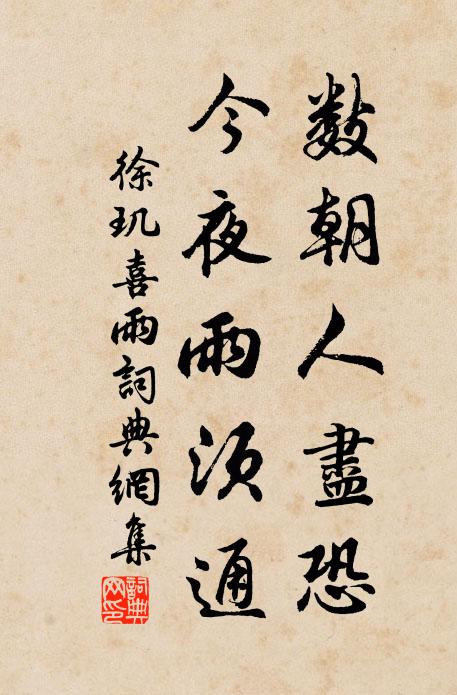 數朝人盡恐
今夜雨須通
徐玑喜雨詞典網集
詞典
网印